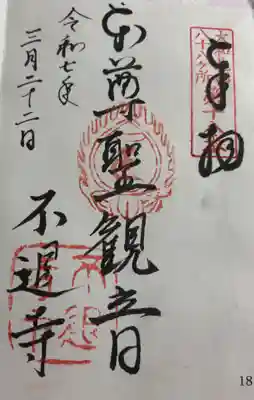 八十八ヶ所
奉拝
本尊聖観音
不退寺
令和七年
三月二十二日
18